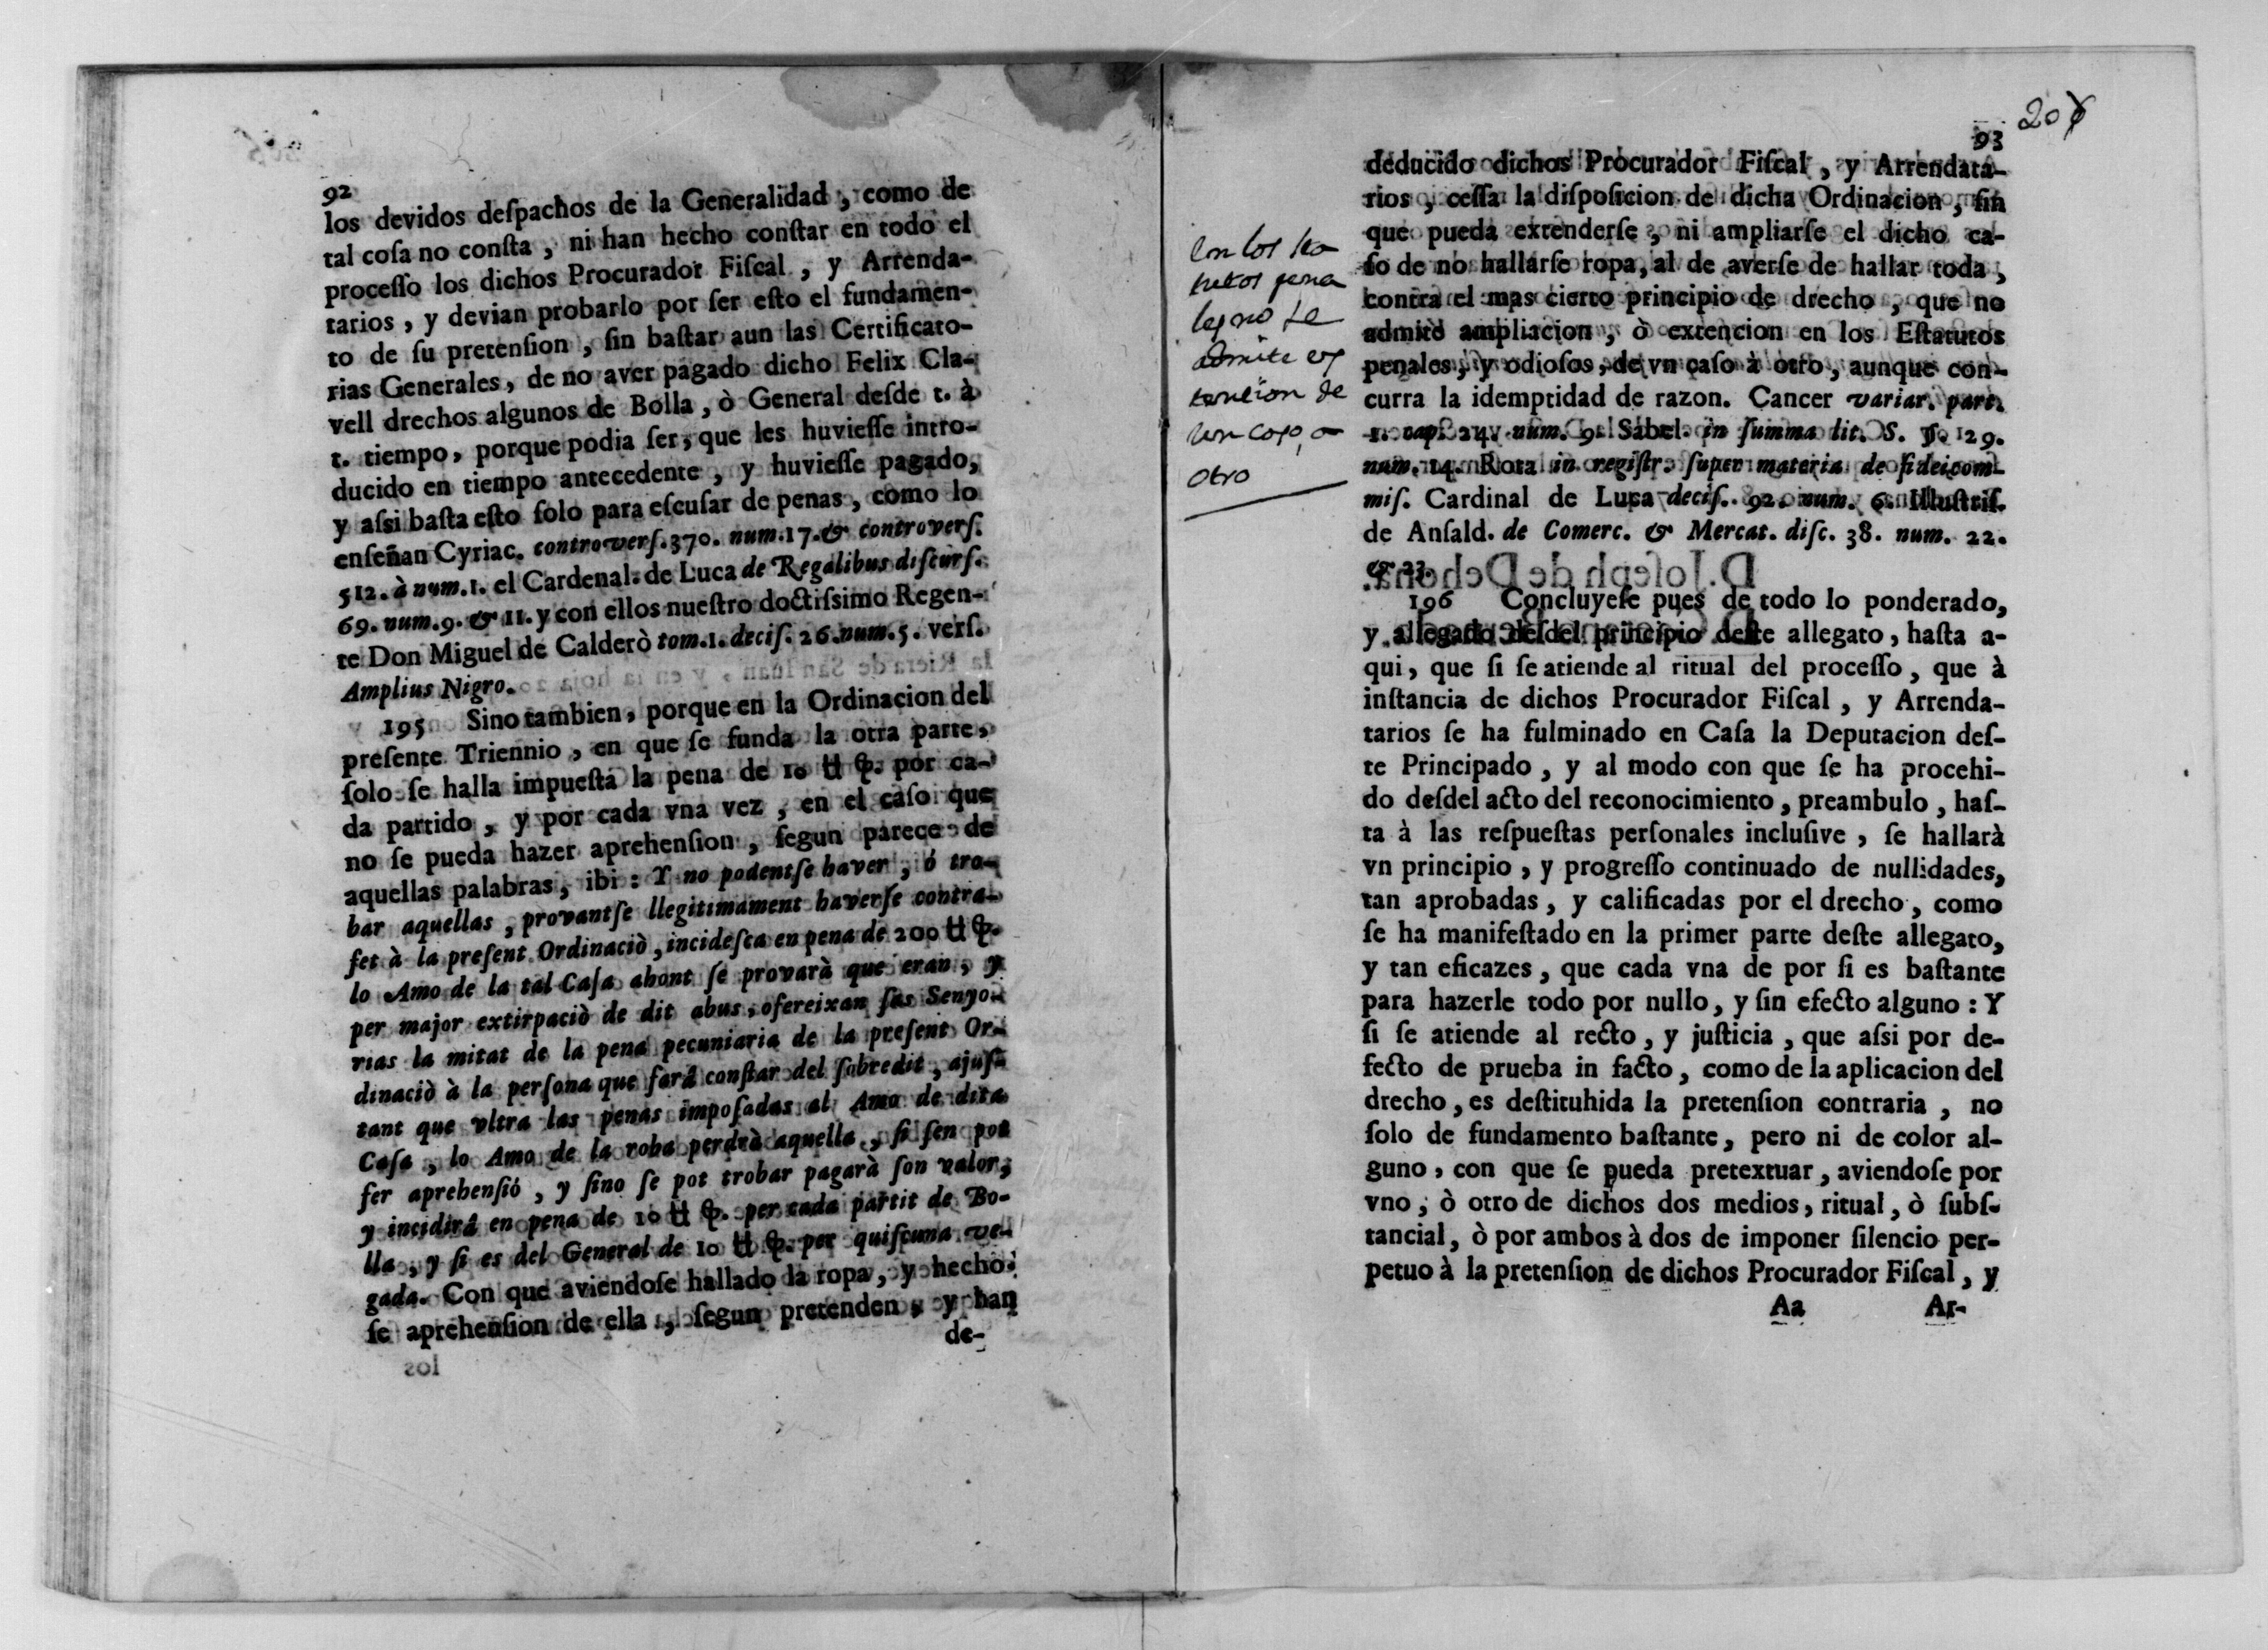 92
los devidos deſpachos de la Generalidad, como de
tal coſa no conſta, ni han hecho conſtar en todo el
proceſſo los dichos Procurador Fiſcal, y Arrenda-
tarios, y devian probarlo por ſer eſto el fundamen-
to de ſu pretenſion, ſin baſtar aun las Certificato-
rias Generales, de no aver pagado dicho Felix Cla-
vell drechos algunos de Bolla, ò General deſde t. à
t. tiempo, porque podia ſer, que les huvieſſe intro-
ducido en tiempo antecedente, y huvieſſe pagado,
y aſsi baſta eſto ſolo para eſcuſar de penas, como lo
enſeñan Cyriac. controverſ. 370. num. 17. & controverſ.
512. à num. 1. el Cardenal de Luca de Regalibus diſcurſ.
69. num. 9. & 11. y con ellos nueſtro doctiſsimo Regen-
te Don Miguel de Calderò tom. 1. deciſ. 26. num. 5. verſ.
Amplius Nigro.
195 Sino tambien, porque en la Ordinacion del
preſente Triennio, en que ſe funda la otra parte,
ſolo ſe halla impueſta la pena de 10 ₶ por ca-
da partido, y por cada vna vez, en el caſo que
no ſe pueda hazer aprehenſion, ſegun parece de
aquellas palabras, ibi: Y no podentſe haver, ó tro-
bar aquellas, provantſe llegitimament haverſe contra-
fet à la preſent Ordinaciò, incideſca en pena de 200 ₶
lo Amo de la tal Caſa ahont ſe provarà que eran, y
per major extirpaciò de dit abus, ofereixan ſas Senyo-
rias la mitat de la pena pecuniaria de la preſent Or-
dinaciò à la perſona que farà conſtar del ſobredit, ajuſ-
tant que vltra las penas impoſadas al Amo de dita
Caſa, lo Amo de la roba perdrà aquella, ſi ſen pot
fer aprehenſió, y ſino ſe pot trobar pagarà ſon valor,
y incidirà en pena de 10 ₶ per cada partit de Bo-
lla, y ſi es del General de 10 ₶ per quiſcuna ve-
gada. Con que aviendoſe hallado la ropa, y hecho-
ſe aprehenſion de ella, ſegun pretenden, y han
de-
93
deducido dichos Procurador Fiſcal, y Arrendata-
rios, ceſſa la diſpoſicion de dicha Ordinacion, ſin
que pueda extenderſe, ni ampliarſe el dicho ca-
ſo de no hallarſe ropa, al de averſe de hallar toda,
contra el mas cierto principio de drecho, que no
admitè ampliacion, ò extencion en los Eſtatutos
penales, y odioſos, de vn caſo à otro, aunque con-
curra la idemptidad de razon. Cancer variar. part.
1. cap. 24. num. 9. Sabel. in ſumma lit. S. §. 129.
num. 14. Rota in regiſtr. ſuper materia de fideicom-
miſ. Cardinal de Luca deciſ. 92. num. 6. Illuſtriſ.
de Anſald. de Comerc. & Mercat. diſc. 38. num. 22.
& 23.
196 Concluyeſe pues de todo lo ponderado,
y allegado deſdel principio deſte allegato, haſta a-
qui, que ſi ſe atiende al ritual del proceſſo, que à
inſtancia de dichos Procurador Fiſcal, y Arrenda-
tarios ſe ha fulminado en Caſa la Deputacion deſ-
te Principado, y al modo con que ſe ha procehi-
do deſdel acto del reconocimiento, preambulo, haſ-
ta à las reſpueſtas perſonales incluſive, ſe hallarà
vn principio, y progreſſo continuado de nullidades,
tan aprobadas, y calificadas por el drecho, como
ſe ha manifeſtado en la primer parte deſte allegato,
y tan eficazes, que cada vna de por ſi es baſtante
para hazerle todo por nullo, y ſin efecto alguno: Y
ſi ſe atiende al recto, y juſticia, que aſsi por de-
fecto de prueba in facto, como de la aplicacion del
drecho, es deſtituhida la pretenſion contraria, no
ſolo de fundamento baſtante, pero ni de color al-
guno, con que ſe pueda pretextuar, aviendoſe por
vno, ò otro de dichos dos medios, ritual, ò ſubſ-
tancial, ò por ambos à dos de imponer ſilencio per-
petuo à la pretenſion de dichos Procurador Fiſcal, y
Aa Ar-
en los
tutos pena
les no se
admite ex
tencion de
un caso a
otro